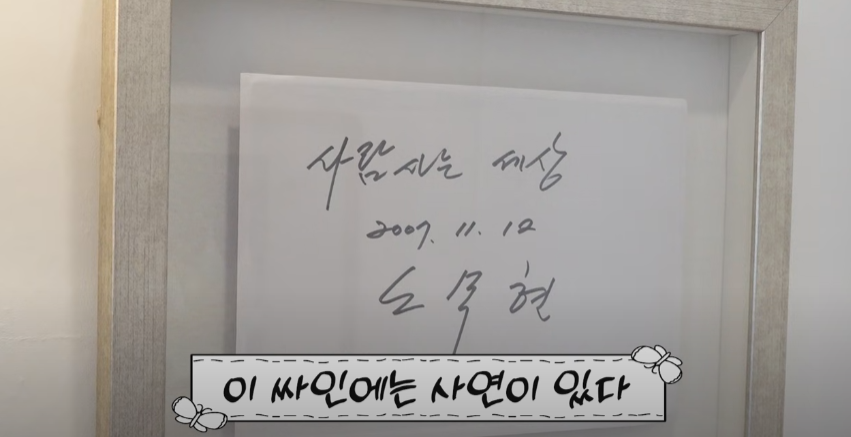 사람사는 세상
2007. 11. 12
노무현
이 싸인에는 사연이 있다